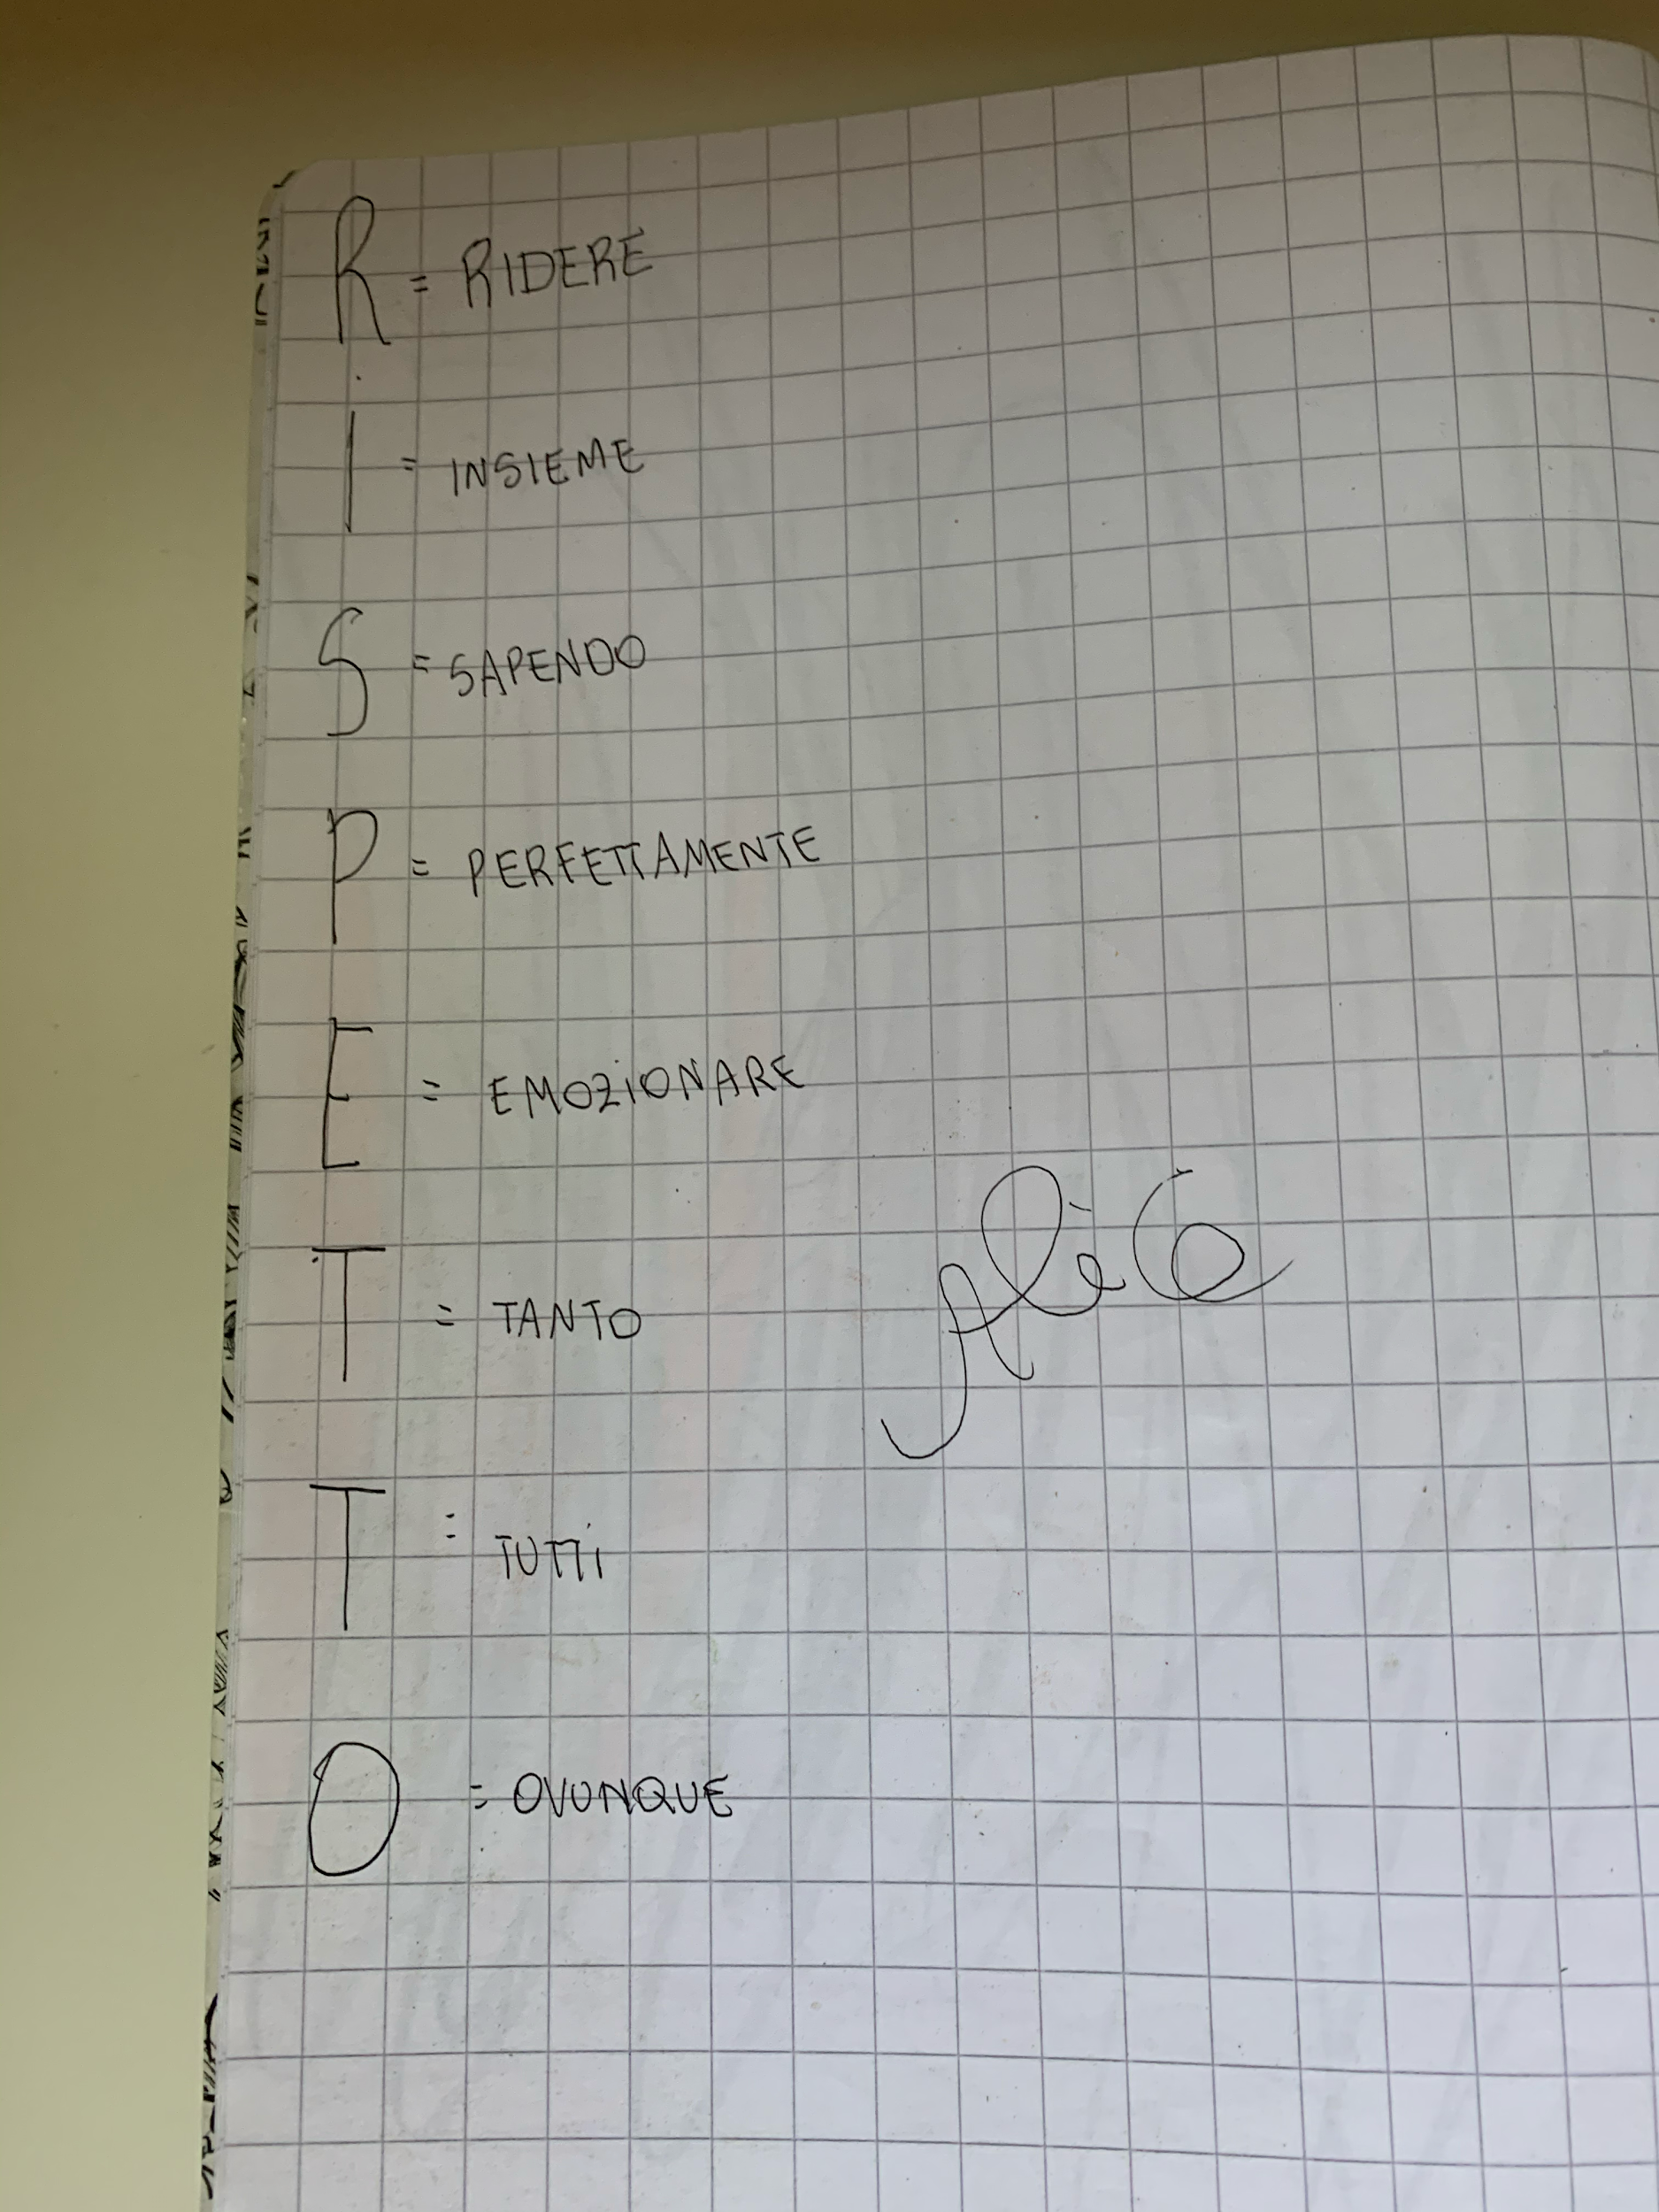 R = RIDERE
I = INSIEME
S = SAPENDO
P = PERFETTAMENTE
E = EMOZIONARE
T = TANTO
T = TUTTI
O = OVUNQUE